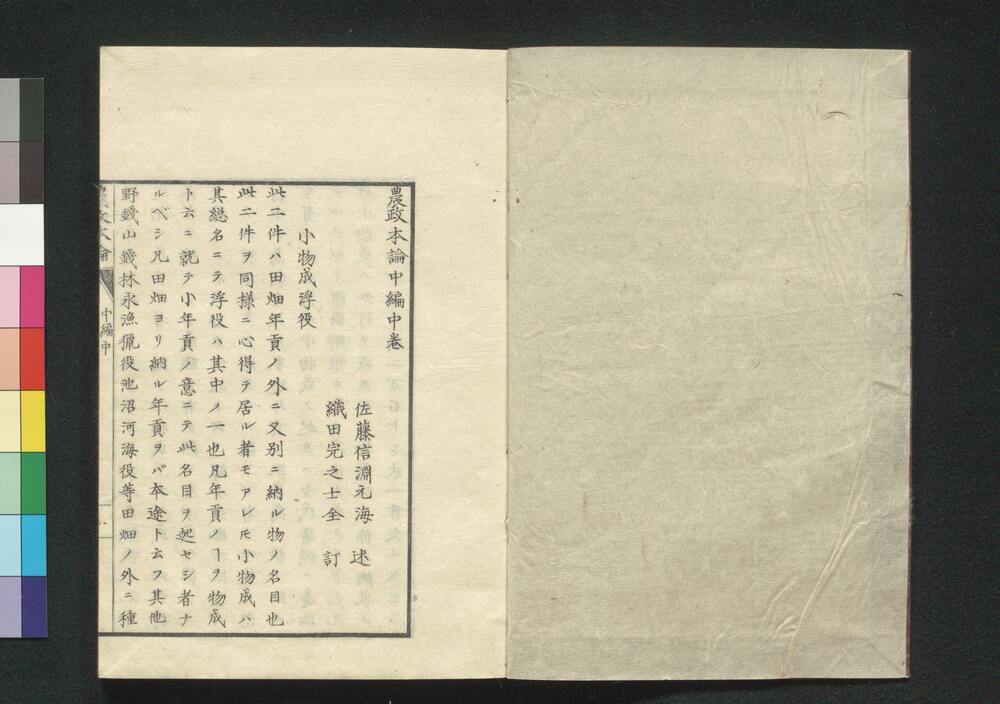 農政本論中編中卷
佐藤信淵元海 述
織田完之士全 訂
小物成浮役
此二件ハ田畑年貢ノ外ニ又別ニ納ル物ノ名目也
此二件ヲ同樣ニ心得テ居ル者モアレ𪜈小物成ハ
其総名ニテ浮役ハ其中ノ一也凡年貢ノヿヲ物成
ト云ニ就テ小年貢ノ意ニテ此名目ヲ起セシ者ナ
ルベシ凡田畑ヨリ納ル年貢ヲバ本途ト云フ其他
野錢山錢林永漁獵役池沼河海役等田畑ノ外ニ種
中編中